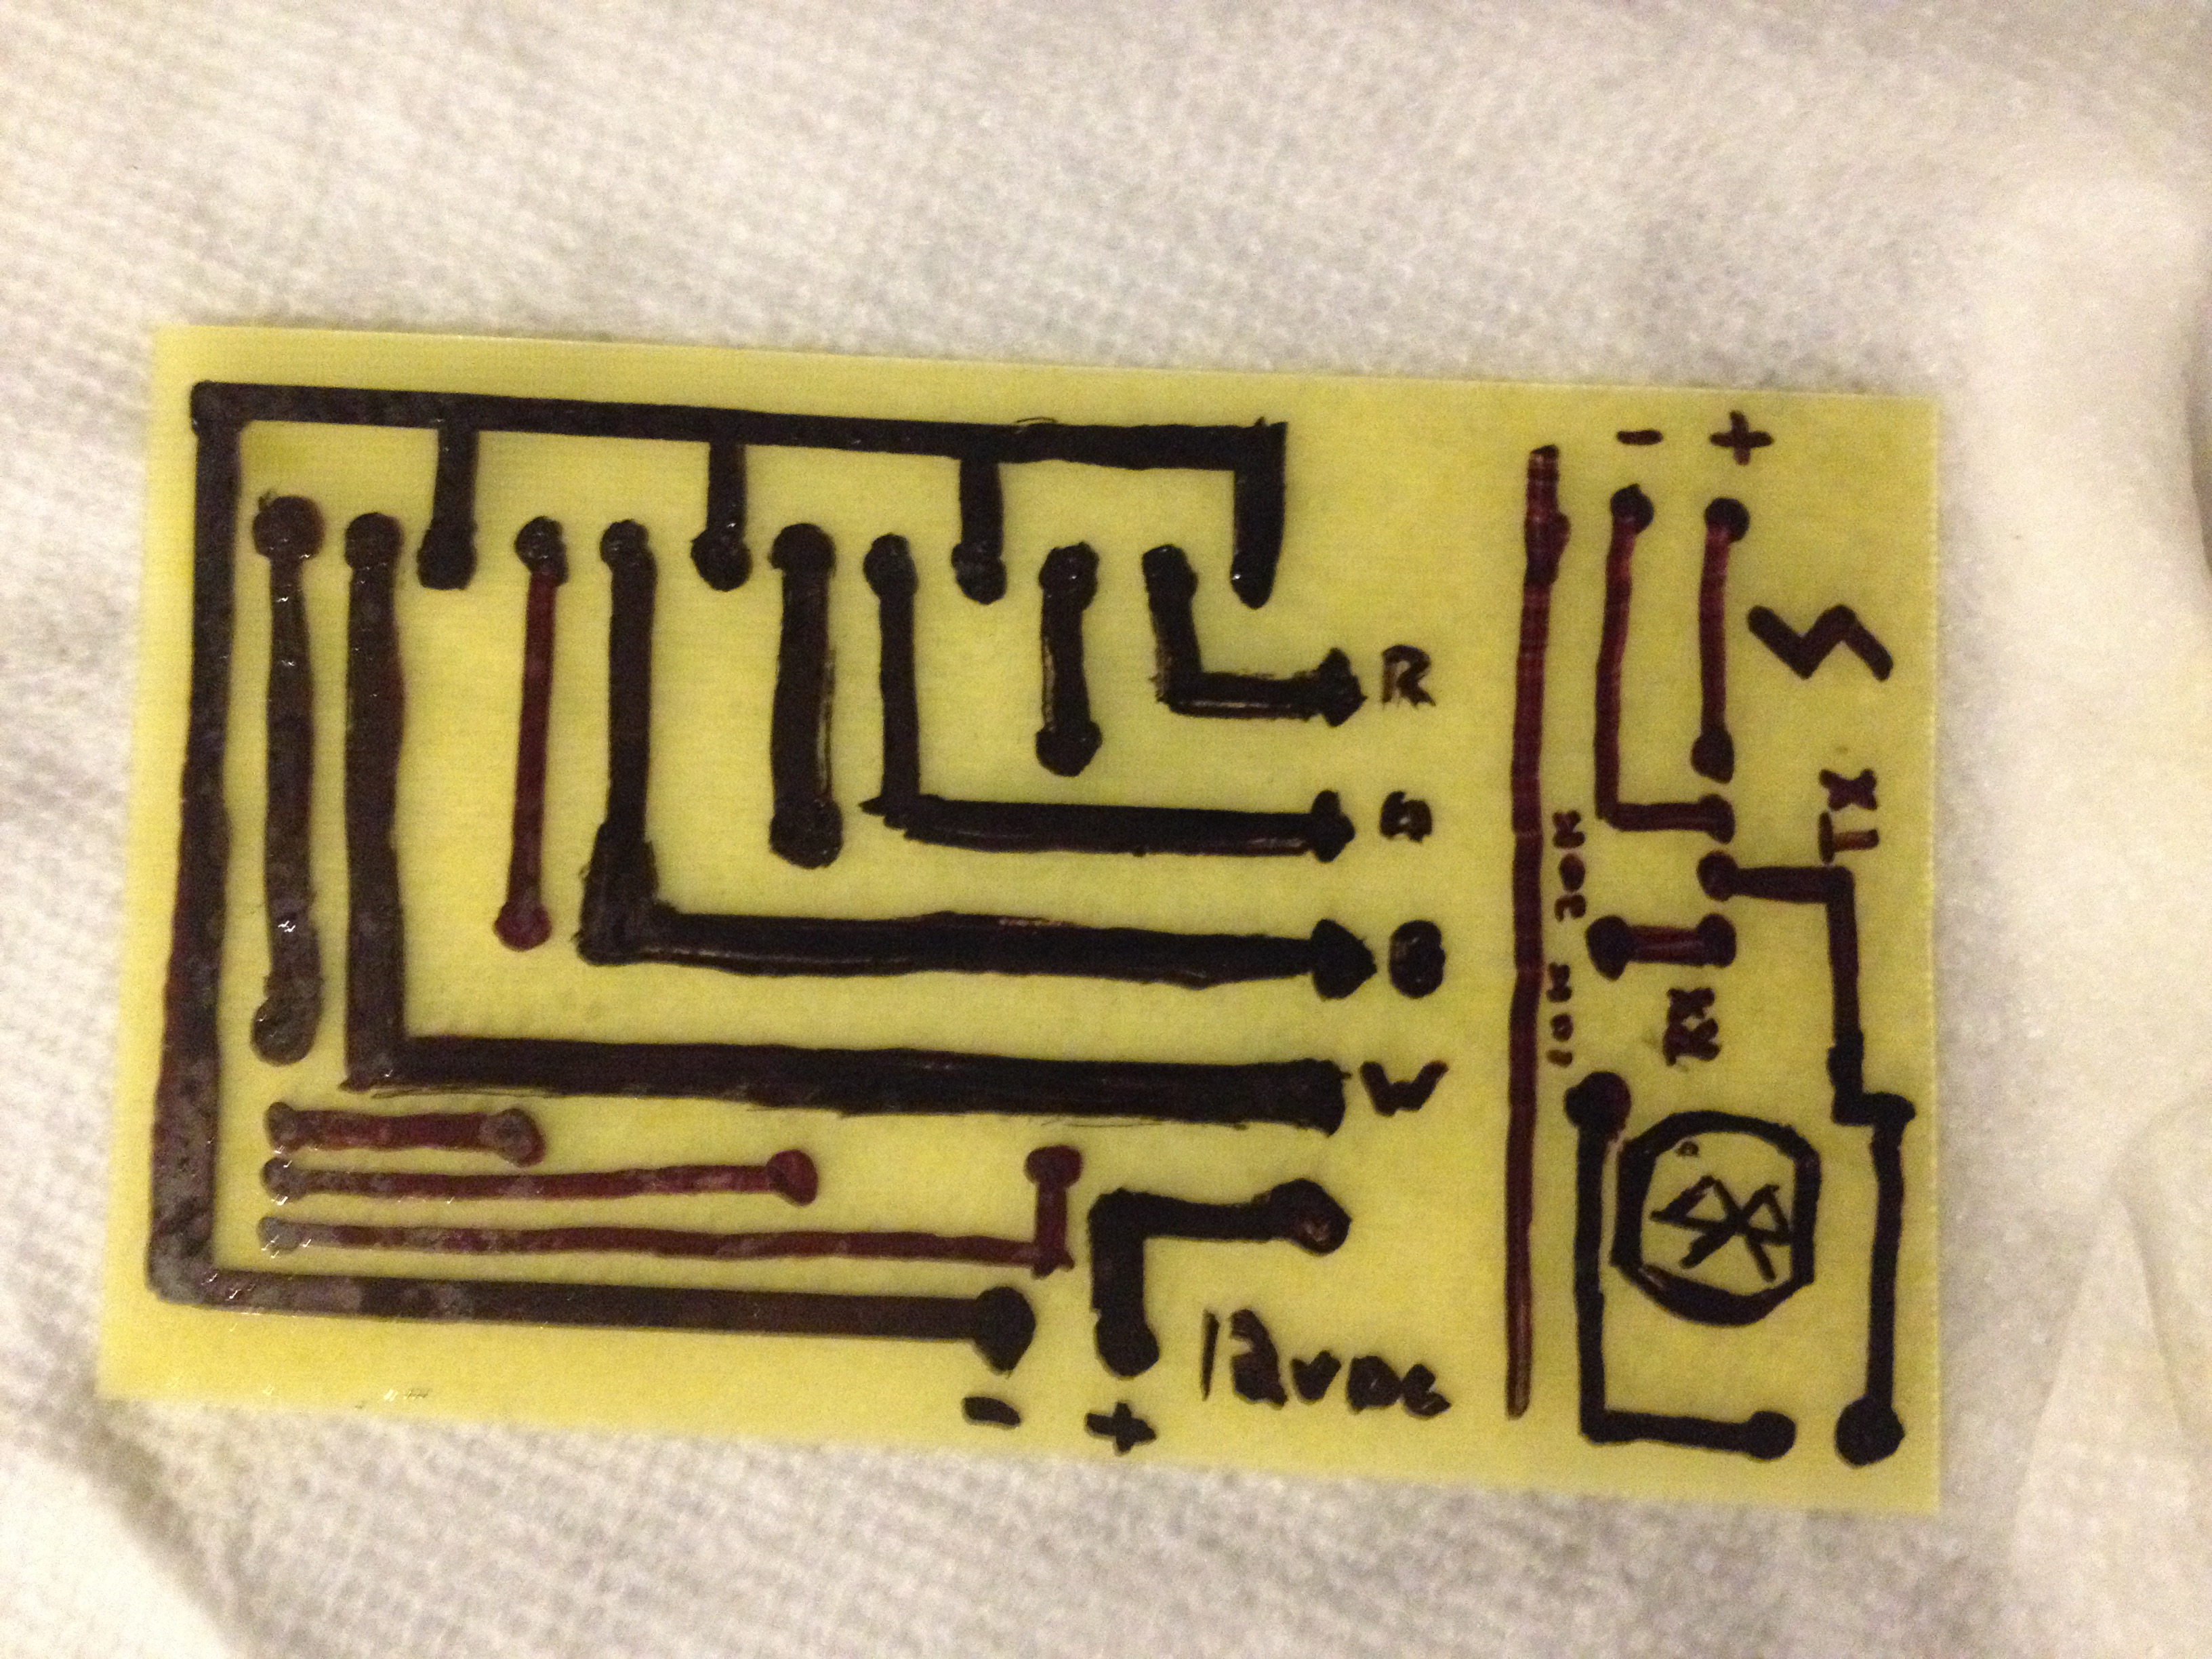 -
+
12VDC
B
G
R
10K 20K
-
RX
+
TX